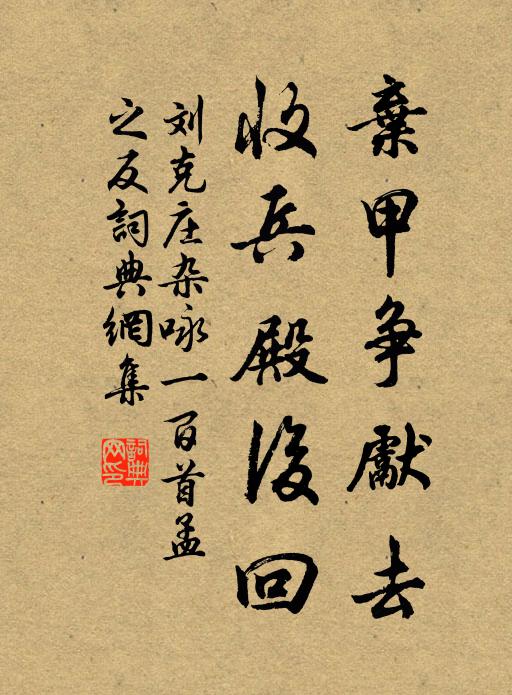 棄甲争獻去
收兵殿後回
刘克庄杂咏一百首孟
之反詞典網集
詞典
网印